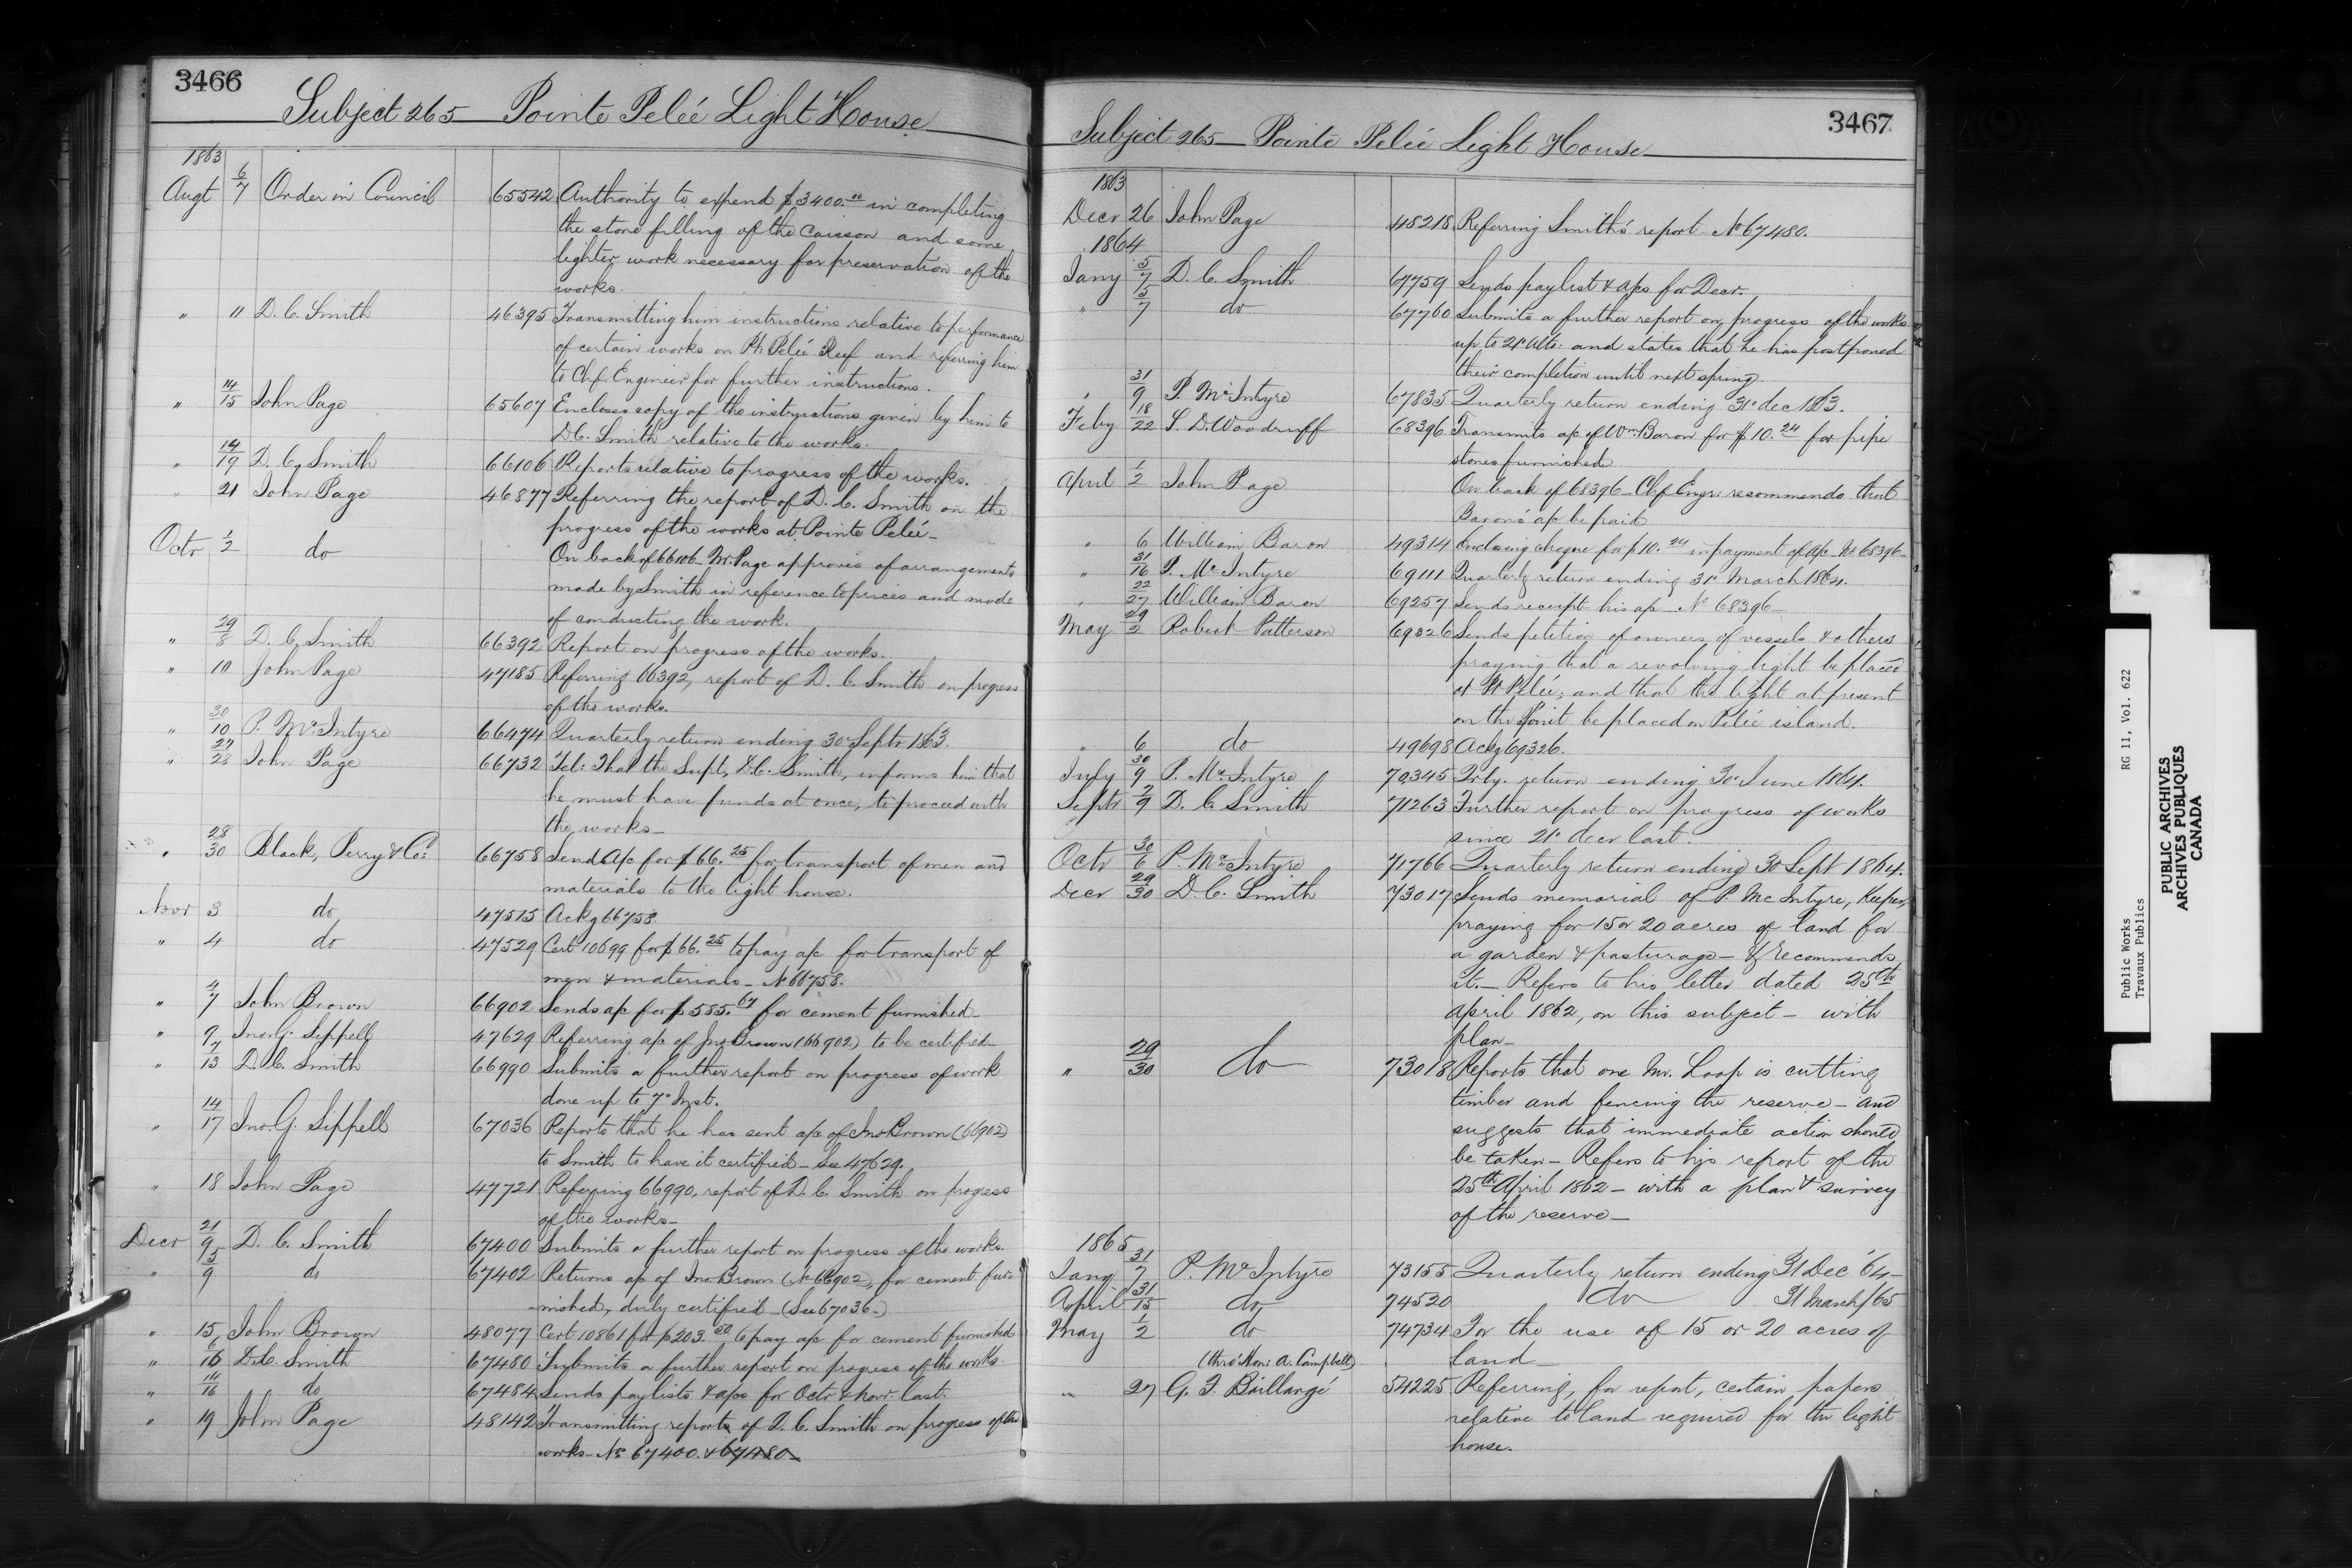 3466
Subject 265 — Pointe Pelée Light House
1863
Augt 6/7 Order in Council 65542 Authority to expend $3400.00 in completing
the stone filling of the Caisson and some
lighter work necessary for preservation of the
works.
" 11 D. C. Smith 46395 Transmitting him instructions relative to performance
of certain works on Pt. Pelée Reef and referring him
to Chf. Engineer for further instructions.
" 14/15 John Page 65607 Encloses copy of the instructions given by him to
D.C. Smith relative to the works.
" 14/19 D. C. Smith 66106 Reports relative to progress of the works.
" 21 John Page 46877 Referring the report of D. C. Smith on the
progress of the works at Pointe Pelée —
Octr 1/2 do On back of 66106 — Mr. Page approves of arrangements
made by Smith in reference to prices and mode
of conducting the work.
" 29/8 D. C. Smith 66392 Report on progress of the works.
" 10 John Page 47185 Referring 66392, report of D. C. Smith on progress
of the works.
" 30/10 P. McIntyre 66474 Quarterly return ending 30 Septr 1863.
" 27/28 John Page 66732 Tel: That the Supt, D.C. Smith, informs him that
he must have funds at once, to proceed with
the works —
" 28/30 Black, Perry & Co: 66758 Sends a/c for $66.25 for transport of men and
materials to the light house.
Novr 3 do 47515 Ackg 66758.
" 4 do 47529 Cert 10699 for $66.25 to pay a/c for transport of
men & materials — No 66758.
" 4/7 John Brown 66902 Sends a/c for $585.67 for cement furnished —
" 9 Jno. G. Sippell 47629 Referring a/c of Jno Brown (66902) to be certified —
" 7/13 D. C. Smith 66990 Submits a further report on progress of work
done up to 7th Inst.
" 14/17 Jno. G. Sippell 67036 Reports that he has sent a/c of Jno Brown (66902)
to Smith to have it certified — See 47629.
" 18 John Page 47721 Referring 66990, report of D. C. Smith on progress
of the works —
Decr 21/9 D. C. Smith 67400 Submits a further report on progress of the works.
" 5/9 do 67402 Returns a/c of Jno Brown (No 66902) for cement fur-
nished, duly certified — (See 67036.)
" 15 John Brown 48077 Cert 10861 for $203.50 to pay a/c for cement furnished
" 16 D.C. Smith 67480 Submits a further report on progress of the works.
" 14/16 do 67484 Sends pay lists & a/cs for Octr & Novr. last.
" 19 John Page 48142 Transmitting reports of D. C. Smith on progress of the
works — Nos 67400. & 67480 —
3467
Subject 265 — Pointe Pelée Light House —
1863
Decr 26 John Page 48218 Referring Smith's report No 67480.
1864
Jany 5/7 D. C. Smith 67759 Sends paylist & a/cs for Decr.
" 5/7 do 67760 Submits a further report on progress of the works
up to 21st ulto: and states that he has postponed
their completion until next spring.
" 31/9 P. McIntyre 67835 Quarterly return ending 31st dec 1863.
Feby 18/22 S. D. Woodruff 68396 Transmits a/c of Wm. Baron for $10.24 for pipe
stones furnished
April 1/2 John Page On back of 68396 — Chf. Engr: recommends that
Baron's a/c be paid
" 6 William Baron 49314 Enclosing cheque for $10.24 in payment of a/c No 68396 —
" 31/16 P. McIntyre 69111 Quarterly return ending 31st March 1864.
" 22/27 William Baron 69257 Sends receipt his a/c No 68396 —
May 29/2 Robert Patterson 69326 Sends petition of owners of vessels & others
praying that a revolving light be placed
at Pt Pelée; and that the light at present
on the Point be placed on Pelée island.
" 6 do 49698 Ackg 69326.
July 30/9 P. McIntyre 70345 Qrly. return ending 30 June 1864.
Septr 7/9 D. C. Smith 71263 Further report on progress of works
since 21st decr last.
Octr 30/6 P. McIntyre 71766 Quarterly return ending 30 Sept 1864.
Decr 29/30 D. C. Smith 73017 Sends memorial of P. McIntyre, Keeper,
praying for 15 or 20 acres of land for
a garden & pasturage — & recommends
it. — Refers to his letter dated 25th
april 1862, on this subject — with
plan —
" 29/30 do 73018 Reports that one Mr. Loop is cutting
timber and fencing the reserve — and
suggests that immediate action should
be taken — Refers to his report of the
25th April 1862 — with a plan & survey
of the reserve —
1865
Jany 31/7 P. McIntyre 73155 Quarterly return ending 31 Dec '64 —
April 31/15 do 74520 do 31 March/65
May 1/2 do 74734 For the use of 15 or 20 acres of
(thro' Hon: A. Campbell) land —
" 27 G. F. Baillargé 54225 Referring, for report, certain papers
relative to land required for the light
house.
Public Works RG 11, Vol. 622
Travaux Publics
PUBLIC ARCHIVES
ARCHIVES PUBLIQUES
CANADA